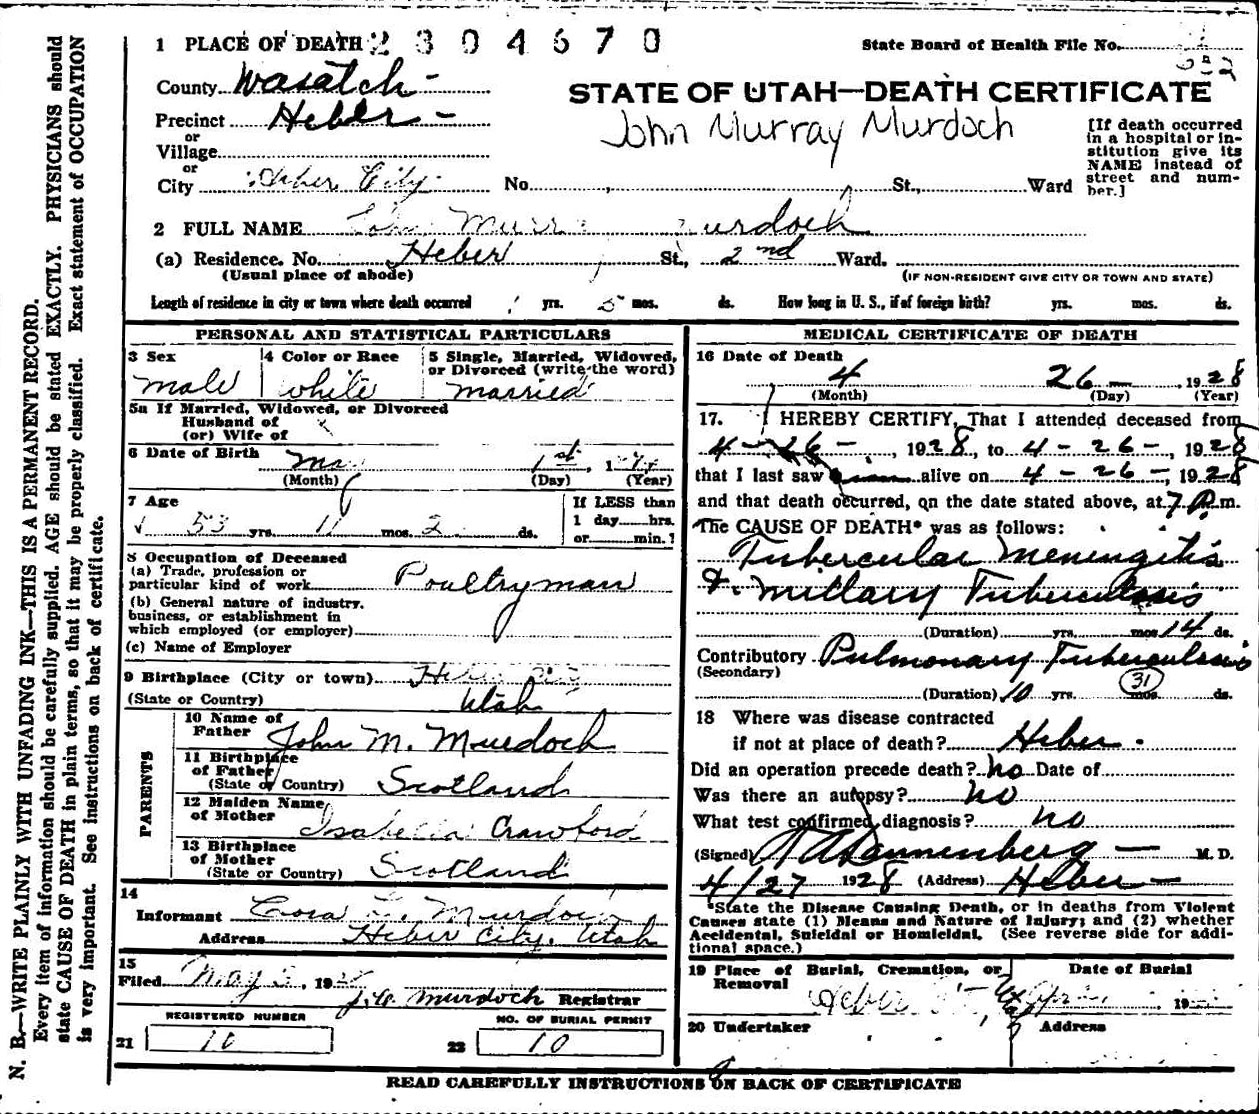 N. B.—WRITE PLAINLY WITH UNFADING INK—THIS IS A PERMANENT RECORD.
Every item of information should be carefully supplied. AGE should be stated EXACTLY. PHYSICIANS should
state CAUSE OF DEATH in plain terms, so that it may be properly classified. Exact statement of OCCUPATION
is very important. See instructions on back of certificate.
1 PLACE OF DEATH 2304670
State Board of Health File No.
County Wasatch -
STATE OF UTAH—DEATH CERTIFICATE
Precinct Heber -
John Murray Murdoch
[If death occurred
in a hospital or in-
stitution give its
NAME instead of
street and num-
ber.]
or
Village
or
City Heber City No. St., Ward
2 FULL NAME John Murray Murdoch
(a) Residence. No. Heber St., 2nd Ward.
(Usual place of abode) (IF NON-RESIDENT GIVE CITY OR TOWN AND STATE)
Length of residence in city or town where death occurred yrs. mos. ds. How long in U. S., if of foreign birth? yrs. mos. ds.
PERSONAL AND STATISTICAL PARTICULARS
3 Sex 4 Color or Race 5 Single, Married, Widowed,
or Divorced (write the word)
male white married
5a If Married, Widowed, or Divorced
Husband of
(or) Wife of
6 Date of Birth May 1st, 1874
(Month) (Day) (Year)
7 Age If LESS than
1 day hrs.
or min.?
53 yrs. 11 mos. 2 ds.
8 Occupation of Deceased
(a) Trade, profession or
particular kind of work Poultryman
(b) General nature of industry,
business, or establishment in
which employed (or employer)
(c) Name of Employer
9 Birthplace (City or town) Heber City
(State or Country) Utah
PARENTS
10 Name of
Father John M. Murdoch
11 Birthplace
of Father
(State or Country) Scotland
12 Maiden Name
of Mother Isabella Crawford
13 Birthplace
of Mother
(State or Country) Scotland
14
Informant Murdoch
Address Heber City, Utah
15
Filed May 19 J. A. Murdoch Registrar
REGISTERED NUMBER NO. OF BURIAL PERMIT
21 10 22 10
MEDICAL CERTIFICATE OF DEATH
16 Date of Death
4 26 - , 1928
(Month) (Day) (Year)
17. I HEREBY CERTIFY, That I attended deceased from
4 - 26 - , 1928, to 4 - 26 - , 1928
that I last saw him alive on 4 - 26 -, 1928
and that death occurred, on the date stated above, at 7 P. m.
The CAUSE OF DEATH* was as follows:
Tubercular Meningitis
& Millary Tuberculosis
(Duration) yrs. mos. 14 ds.
Contributory Pulmonary Tuberculosis
(Secondary)
(Duration) 10 yrs. 31 mos. ds.
18 Where was disease contracted
if not at place of death? Heber -
Did an operation precede death? no Date of
Was there an autopsy? no
What test confirmed diagnosis? no
(Signed) Dannenberg — M. D.
4/27 1928 (Address) Heber -
*State the Disease Causing Death, or in deaths from Violent
Causes state (1) Means and Nature of Injury; and (2) whether
Accidental, Suicidal or Homicidal. (See reverse side for addi-
tional space.)
19 Place of Burial, Cremation, or
Removal
Date of Burial
Heber 19
20 Undertaker Address
READ CAREFULLY INSTRUCTIONS ON BACK OF CERTIFICATE